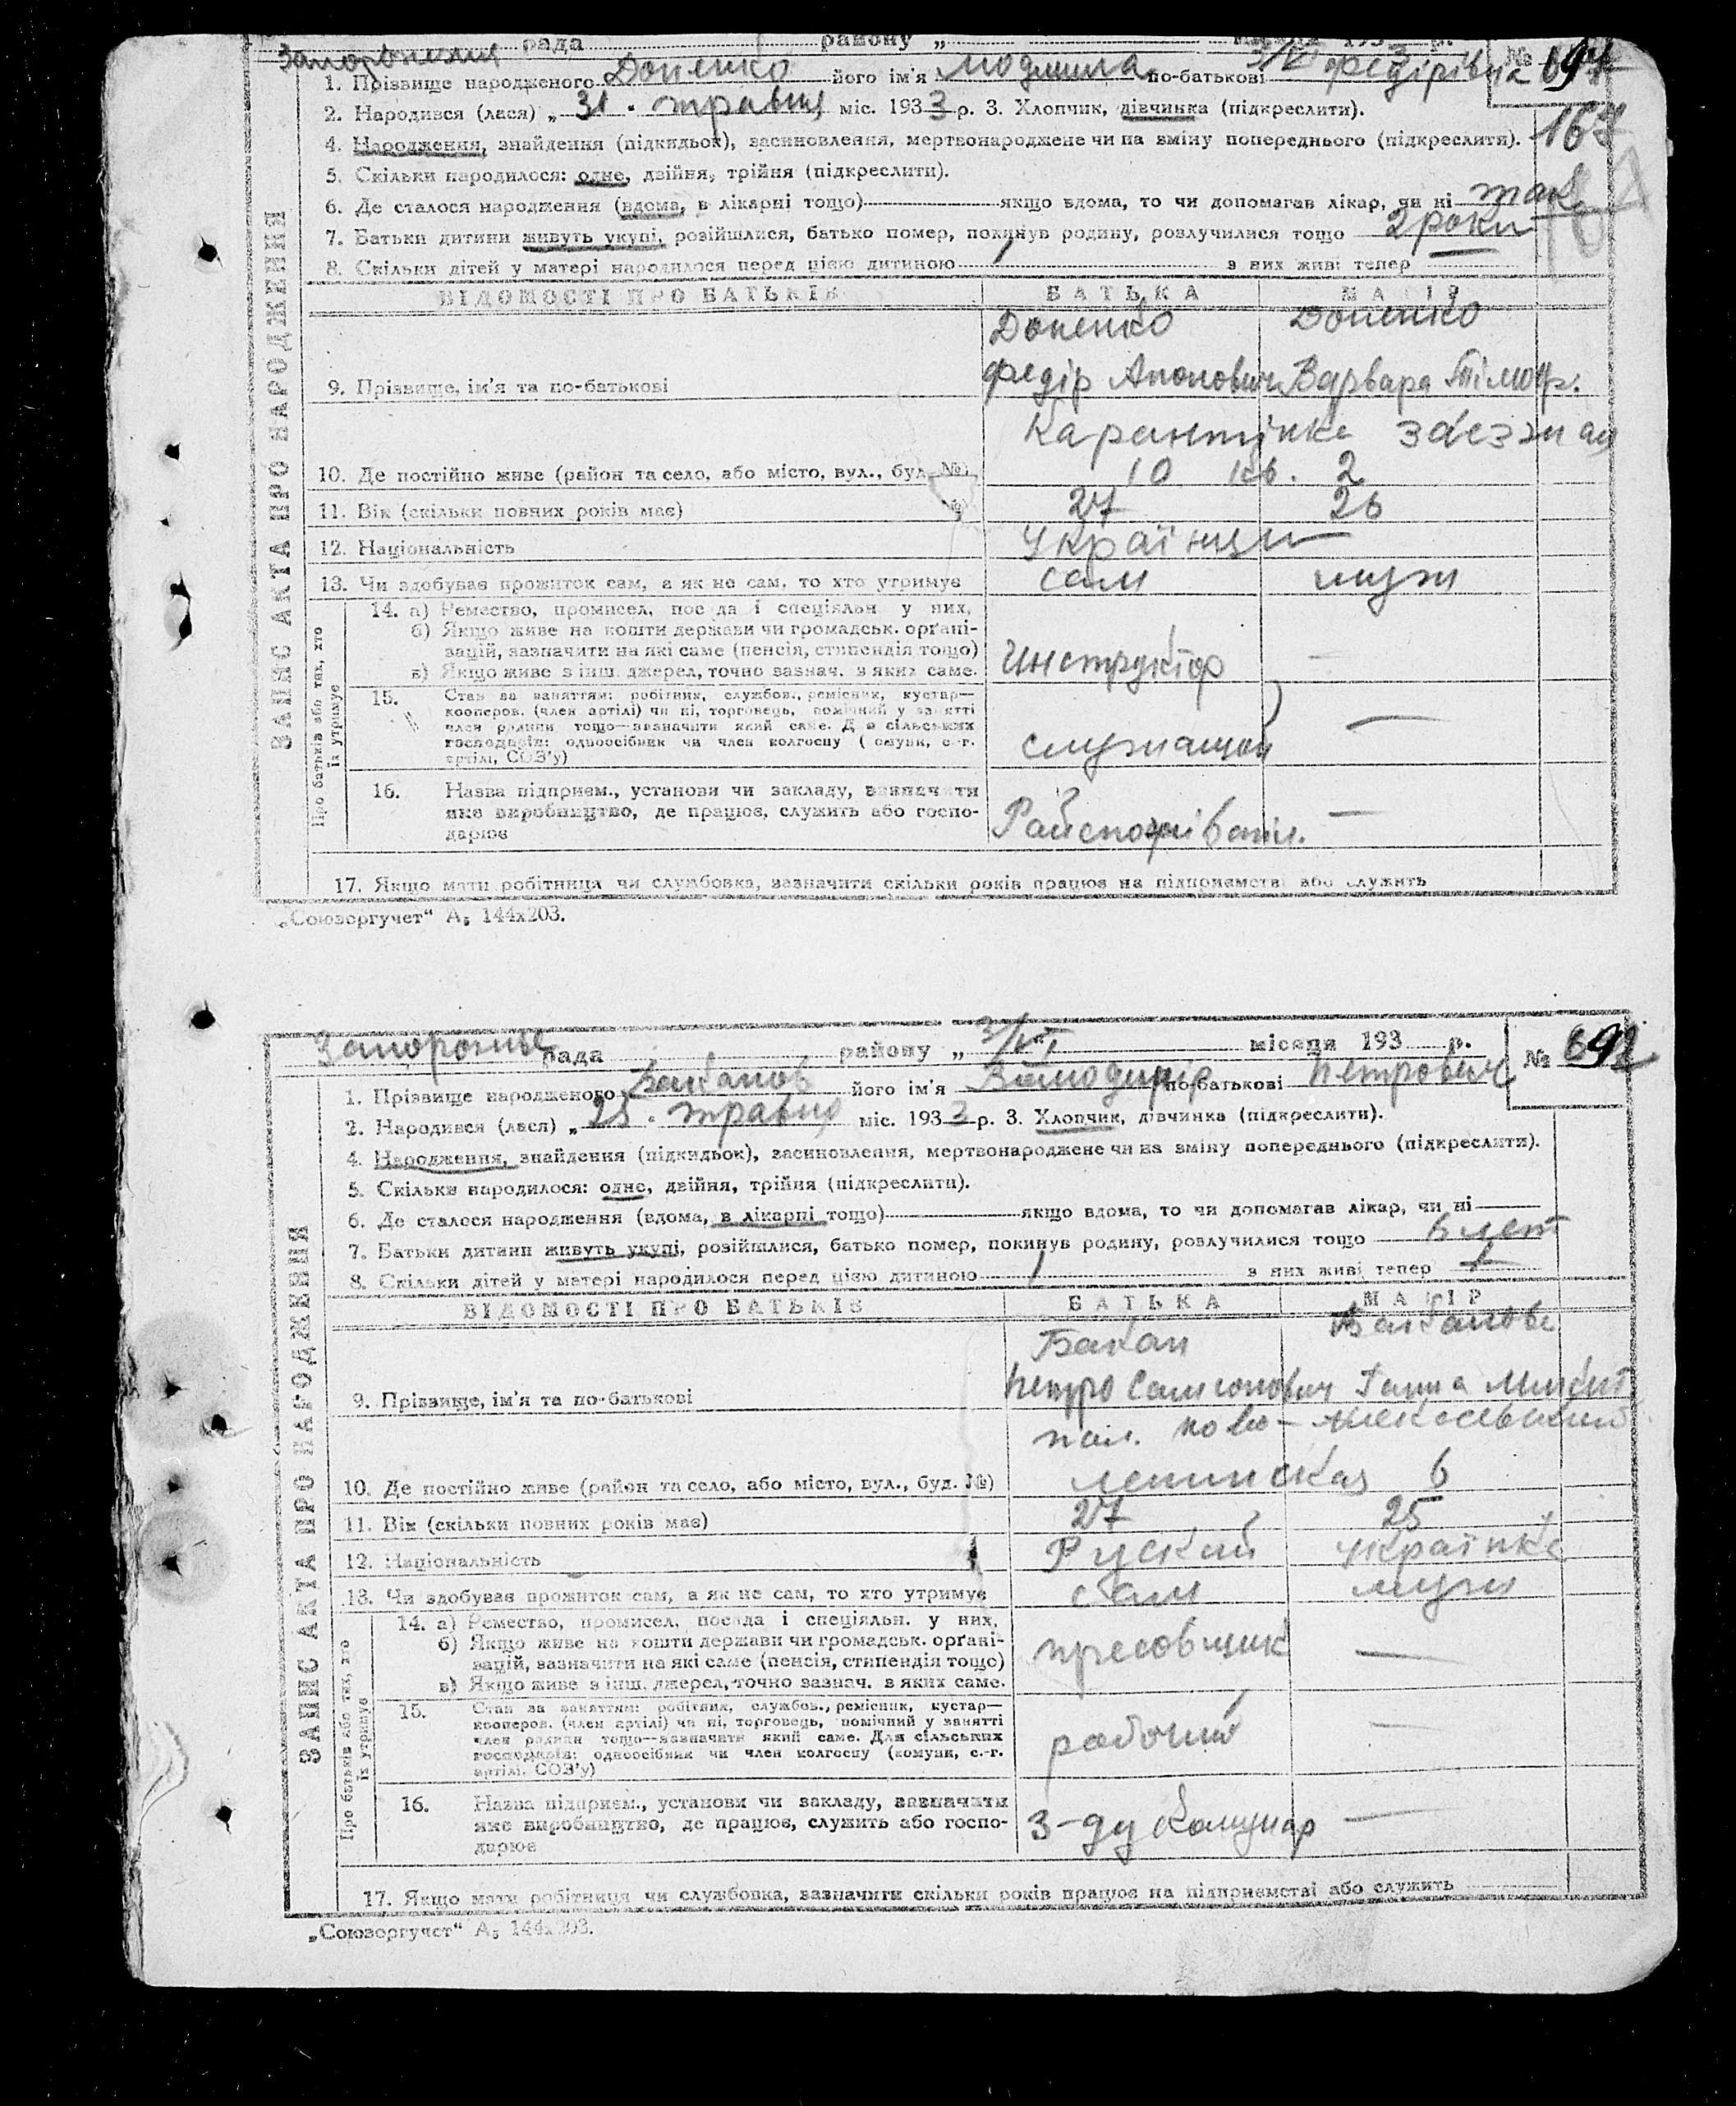 Запорожжя рада району „ 3/VI 1933 р. № 691
1. Прізвище народженого Доненко його ім'я Людмила по-батькові Федірівна
167
2. Народився (лася) „ 31 " травня міс. 1933 р. 3. Хлопчик, дівчинка (підкреслити).
4. Народження, знайдення (підкидьок), засиновлення, мертвонароджене чи на зміну попереднього (підкреслити).
5. Скільки народилося: одне, двійня, трійня (підкреслити).
6. Де сталося народження (вдома, в лікарні тощо) якщо вдома, то чи допомагав лікар, чи ні так
7. Батьки дитини живуть укупі, розійшлися, батько помер, покинув родину, розлучилися тощо 2 роки
8. Скільки дітей у матері народилося перед цією дитиною з них живі тепер
ЗАПИС АКТА ПРО НАРОДЖЕННЯ
ВІДОМОСТІ ПРО БАТЬКІВ БАТЬКА МАТІР
Доненко Доненко
9. Прізвище, ім'я та по-батькові Федір Варвара Тімоф.
Карантінка
10. Де постійно живе (район та село, або місто, вул., буд. №) 10 кв. 2
11. Вік (скільки повних років має) 27 26
12. Національність Українци
13. Чи здобуває прожиток сам, а як не сам, то хто утримує сам муж
Про батьків або тих, хто їх утримує
14. а) Ремество, промисел, посада і спеціяльн. у них,
б) Якщо живе на кошти держави чи громадськ. орґані-
зацій, зазначити на які саме (пенсія, стипендія тощо) Инструктор —
в) Якщо живе з інш. джерел, точно зазнач. з яких саме.
15. Стан за заняттям: робітник, службов., ремісник, кустар—
кооперов. (член артілі) чи ні, торговець, помічний у занятті
член родини тощо—зазначити який саме. Для сільських
господарів: одноосібник чи член колгоспу (комуни, с.-г. служащий —
артілі, СОЗ'у)
16. Назва підприєм., установи чи закладу, зазначити
яке виробництво, де працює, служить або госпо- —
дарює
17. Якщо мати робітниця чи службовка, зазначити скільки років працює на підприємстві або служить
„Союзоргучет“ А5 144х203.
Запорожье рада району „ 3/VI місяця 193 р. № 692
1. Прізвище народженого Баканов його ім'я Володимір по-батькові Петрович
2. Народився (лася) „ 25 " травня міс. 1933 р. 3. Хлопчик, дівчинка (підкреслити).
4. Народження, знайдення (підкидьок), засиновлення, мертвонароджене чи на зміну попереднього (підкреслити).
5. Скільки народилося: одне, двійня, трійня (підкреслити).
6. Де сталося народження (вдома, в лікарні тощо) якщо вдома, то чи допомагав лікар, чи ні
7. Батьки дитини живуть укупі, розійшлися, батько помер, покинув родину, розлучилися тощо 6 лет
8. Скільки дітей у матері народилося перед цією дитиною 1 з них живі тепер 1
ЗАПИС АКТА ПРО НАРОДЖЕННЯ
ВІДОМОСТІ ПРО БАТЬКІВ БАТЬКА МАТІР
Бакан Баканова
9. Прізвище, ім'я та по-батькові Петро Самсонович Ганна Микит
ново-
10. Де постійно живе (район та село, або місто, вул., буд. №) Ленинская 6
11. Вік (скільки повних років має) 27 25
12. Національність Руский українка
13. Чи здобуває прожиток сам, а як не сам, то хто утримує сам муж
Про батьків або тих, хто їх утримує
14. а) Ремество, промисел, посада і спеціяльн. у них,
б) Якщо живе на кошти держави чи громадськ. орґані-
зацій, зазначити на які саме (пенсія, стипендія тощо) пресовщик —
в) Якщо живе з інш. джерел, точно зазнач. з яких саме.
15. Стан за заняттям: робітник, службов., ремісник, кустар—
кооперов. (член артілі) чи ні, торговець, помічний у занятті
член родини тощо—зазначити який саме. Для сільських
господарів: одноосібник чи член колгоспу (комуни, с.-г. рабочий —
артілі, СОЗ'у)
16. Назва підприєм., установи чи закладу, зазначити
яке виробництво, де працює, служить або госпо- з-ду Комунар —
дарює
17. Якщо мати робітниця чи службовка, зазначити скільки років працює на підприємстві або служить
„Союзоргучет“ А5 144х203.